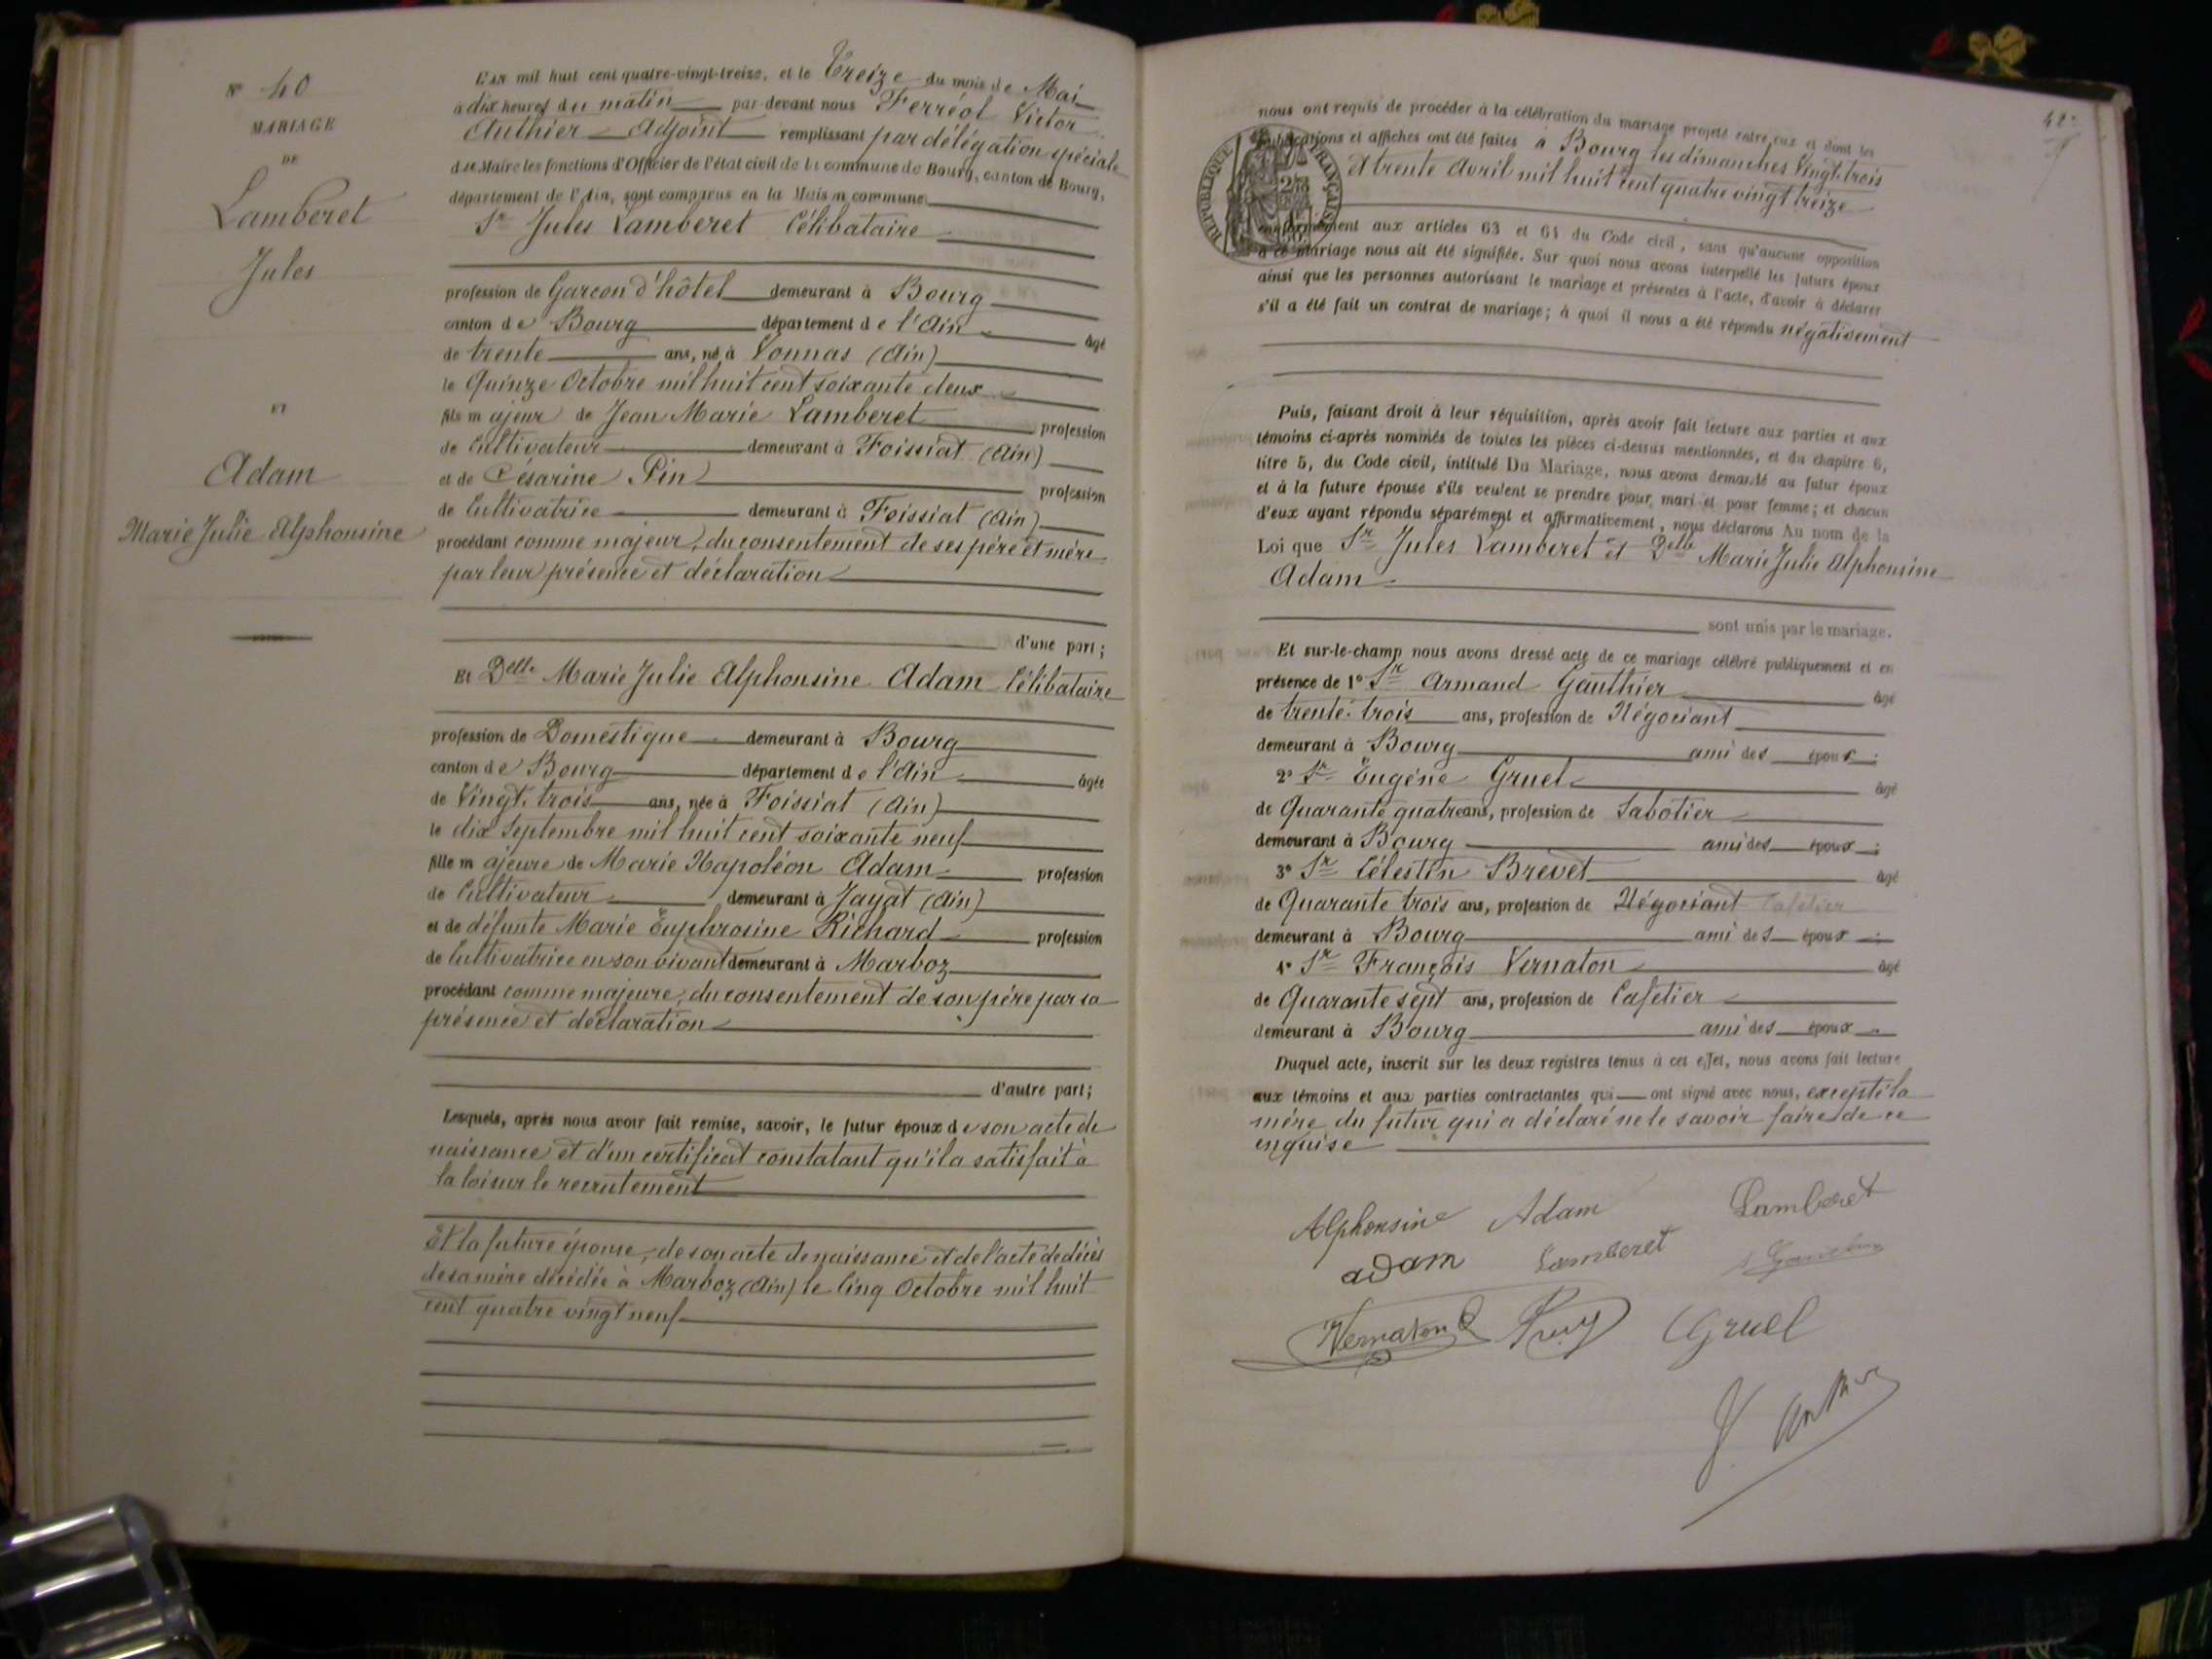 N° 40
MARIAGE
DE
Lamberet
Jules
ET
Adam
Marie Julie Alphonsine
L'AN mil huit cent quatre-vingt-treize, et le Treize du mois de Mai
à dix heures du matin par-devant nous Ferréol Victor
Authier Adjoint remplissant par délégation spéciale
du Maire les fonctions d'Officier de l'état civil de la commune de Bourg, canton de Bourg,
département de l'Ain, sont comparus en la Maison commune
Sr Jules Lamberet Célibataire
profession de Garçon d'hôtel demeurant à Bourg
canton de Bourg département de l'Ain âgé
de trente ans, né à Vonnas (Ain)
le Quinze Octobre mil huit cent soixante deux
fils majeur de Jean Marie Lamberet profession
de Cultivateur demeurant à Foissiat (Ain)
et de Césarine Pin profession
de Cultivatrice demeurant à Foissiat (Ain)
procédant comme majeur, du consentement de ses père et mère
par leur présence et déclaration
d'une part;
Et Delle Marie Julie Alphonsine Adam Célibataire
profession de Domestique demeurant à Bourg
canton de Bourg département de l'Ain âgée
de Vingt-trois ans, née à Foissiat (Ain)
le dix Septembre mil huit cent soixante neuf
fille majeure de Marie Napoléon Adam profession
de Cultivateur demeurant à Jayat (Ain)
et de défunte Marie Euphrosine Richard profession
de Cultivatrice en son vivant demeurant à Marboz
procédant comme majeure, du consentement de son père par sa
présence et déclaration
d'autre part;
Lesquels, après nous avoir fait remise, savoir, le futur époux de son acte de
naissance et d'un certificat constatant qu'il a satisfait à
la loi sur le recrutement
Et la future épouse, de son acte de naissance et de l'acte de décès
de sa mère décédée à Marboz (Ain) le Cinq Octobre mil huit
cent quatre vingt neuf
42
nous ont requis de procéder à la célébration du mariage projeté entre eux et dont les
publications et affiches ont été faites à Bourg les dimanches Vingt-trois
et trente Avril mil huit cent quatre vingt treize
RÉPUBLIQUE FRANÇAISE
conformément aux articles 63 et 64 du Code civil, sans qu'aucune opposition
à ce mariage nous ait été signifiée. Sur quoi nous avons interpellé les futurs époux
ainsi que les personnes autorisant le mariage et présentes à l'acte, d'avoir à déclarer
s'il a été fait un contrat de mariage; à quoi il nous a été répondu négativement
Puis, faisant droit à leur réquisition, après avoir fait lecture aux parties et aux
témoins ci-après nommés de toutes les pièces ci-dessus mentionnées, et du chapitre 6,
titre 5, du Code civil, intitulé Du Mariage, nous avons demandé au futur époux
et à la future épouse s'ils veulent se prendre pour mari et pour femme; et chacun
d'eux ayant répondu séparément et affirmativement, nous déclarons Au nom de la
Loi que Sr Jules Lamberet et Delle Marie Julie Alphonsine
Adam
sont unis par le mariage.
Et sur-le-champ nous avons dressé acte de ce mariage célébré publiquement et en
présence de 1° Sr Armand Gauthier âgé
de trente-trois ans, profession de Négociant
demeurant à Bourg ami des époux;
2° Sr Eugène Gruel âgé
de Quarante quatre ans, profession de Sabotier
demeurant à Bourg ami des époux;
3° Sr Célestin Brevet âgé
de Quarante trois ans, profession de Négociant Cafetier
demeurant à Bourg ami des époux;
4° Sr François Vernaton âgé
de Quarante sept ans, profession de Cafetier
demeurant à Bourg ami des époux
Duquel acte, inscrit sur les deux registres tenus à cet effet, nous avons fait lecture
aux témoins et aux parties contractantes qui ont signé avec nous, excepté la
mère du futur qui a déclaré ne le savoir faire de ce
enquise
Alphonsine Adam Lamberet
adam Lamberet
Vernaton Gruel